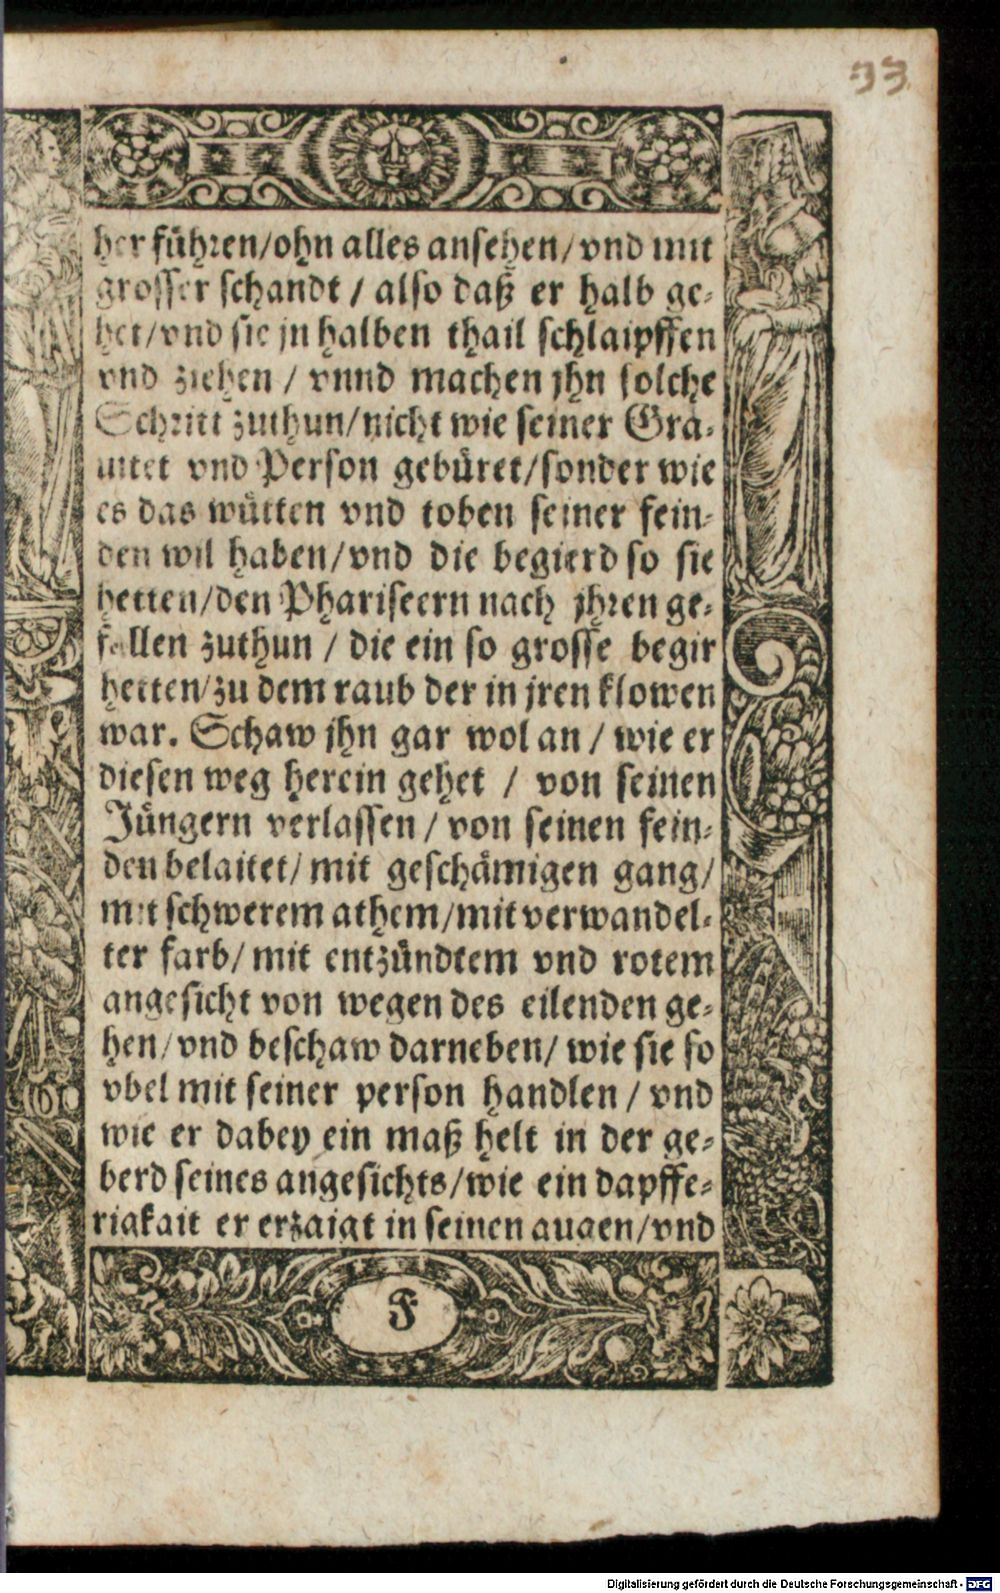 33
her führen/ohn alles ansehen/vnd mit
grosser schandt / also daß er halb ge-
het/vnd sie jn halben thail schlaipffen
vnd ziehen / vnnd machen jhn solche
Schritt zuthun/nicht wie seiner Gra-
uitet vnd Person gebüret/sonder wie
es das wütten vnd toben seiner fein-
den wil haben/vnd die begierd so sie
hetten/den Phariseern nach jhren ge-
fallen zuthun / die ein so grosse begir
hetten/zu dem raub der in jren klowen
war. Schaw jhn gar wol an / wie er
diesen weg herein gehet / von seinen
Jüngern verlassen / von seinen fein-
den belaitet/ mit geschämigen gang/
mit schwerem athem/mit verwandel-
ter farb/ mit entzündtem vnd rotem
angesicht von wegen des eilenden ge-
hen/vnd beschaw darneben/ wie sie so
vbel mit seiner person handlen / vnd
wie er dabey ein maß helt in der ge-
berd seines angesichts/wie ein dapffe-
rigkait er erzaigt in seinen augen/vnd
F
Digitalisierung gefördert durch die Deutsche Forschungsgemeinschaft - DFG